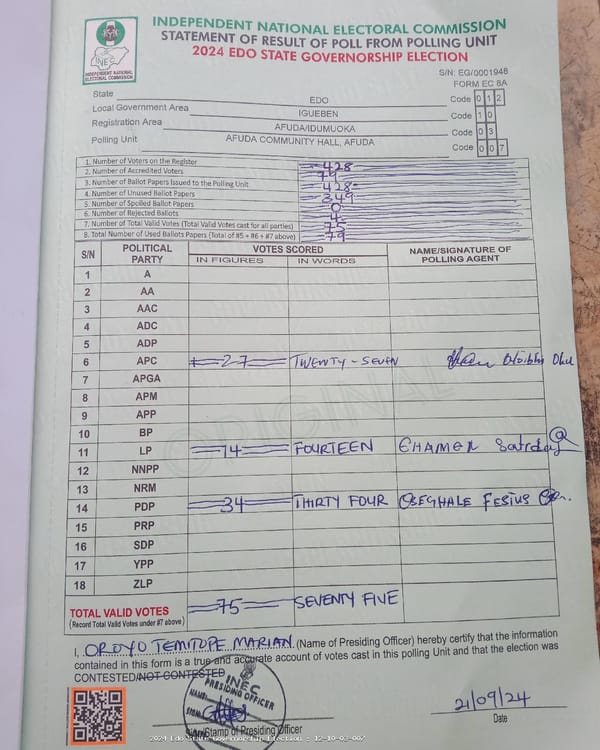 INDEPENDENT NATIONAL ELECTORAL COMMISSION
STATEMENT OF RESULT OF POLL FROM POLLING UNIT
2024 EDO STATE GOVERNORSHIP ELECTION
INEC
INDEPENDENT NATIONAL ELECTORAL COMMISSION
S/N: EG/0001948
FORM EC 8A
State EDO Code 0 1 2
Local Government Area IGUEBEN Code 1 0
Registration Area AFUDA/IDUMUOKA Code 0 3
Polling Unit AFUDA COMMUNITY HALL, AFUDA Code 0 0 7
1. Number of Voters on the Register 428
2. Number of Accredited Voters 79
3. Number of Ballot Papers Issued to the Polling Unit 428
4. Number of Unused Ballot Papers 349
5. Number of Spoiled Ballot Papers 0
6. Number of Rejected Ballots 4
7. Number of Total Valid Votes (Total Valid Votes cast for all parties) 75
8. Total Number of Used Ballots Papers (Total of #5 + #6 + #7 above) 79
S/N POLITICAL PARTY VOTES SCORED NAME/SIGNATURE OF POLLING AGENT
IN FIGURES IN WORDS
1 A
2 AA
3 AAC
4 ADC
5 ADP
6 APC 27 TWENTY-SEVEN
7 APGA
8 APM
9 APP
10 BP
11 LP 14 FOURTEEN EHAMEN Saturday
12 NNPP
13 NRM
14 PDP 34 THIRTY FOUR OSEGHALE FESTUS
15 PRP
16 SDP
17 YPP
18 ZLP
ORIGINAL
TOTAL VALID VOTES 75 SEVENTY FIVE
(Record Total Valid Votes under #7 above)
I, OROYO TEMITOPE MARIAN (Name of Presiding Officer) hereby certify that the information
contained in this form is a true and accurate account of votes cast in this polling Unit and that the election was
CONTESTED/NOT CONTESTED
INEC
PRESIDING OFFICER
NAME:
SIGN:
21/09/24
Stamp of Presiding Officer
Date
2024 Edo State Governorship Election : 12-10-03-007